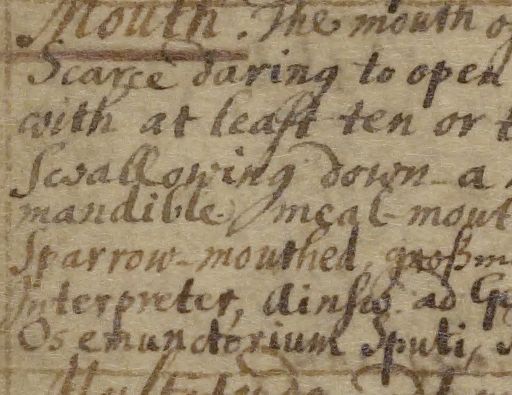 Mouth. The mouth of
Scarce daring to open
with at least ten or
Swallowing down a
mandible. meal-mout
Sparrow-mouthed, großm
Interpreter, ad
Os emunctorium Sputi,